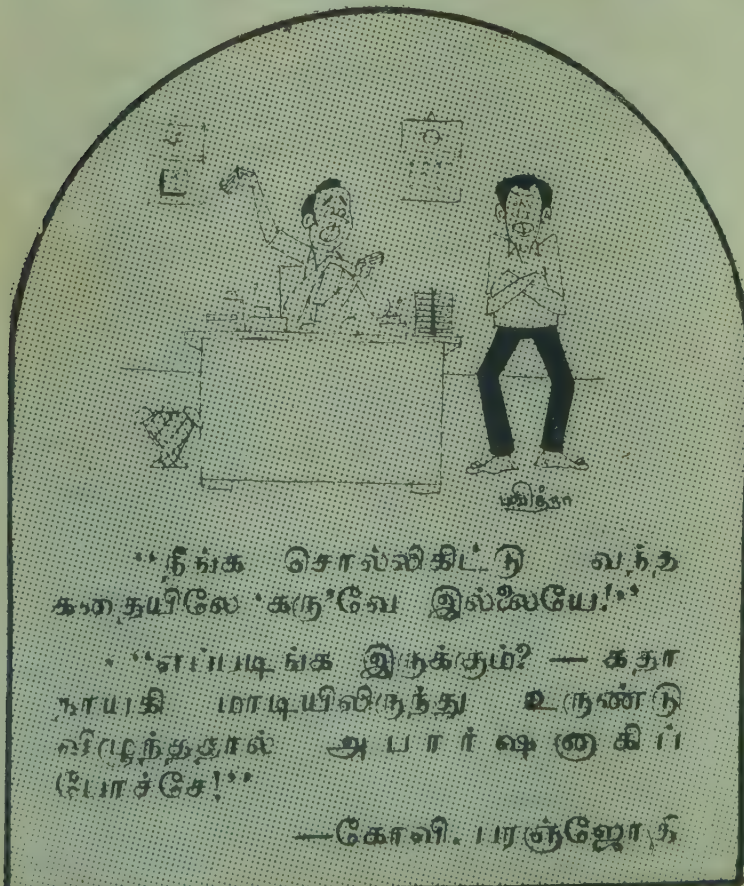 பவித்ரா
“நீங்க சொல்லிகிட்டு வந்த
கதையிலே ‘கரு’வே இல்லையே!”
“எப்படிங்க இருக்கும்? — கதா
நாயகி மாடியிலிருந்து உருண்டு
விழுந்ததால் அபார்ஷனாகிப்
போச்சே!”
—கோவி. பரஞ்ஜோதி